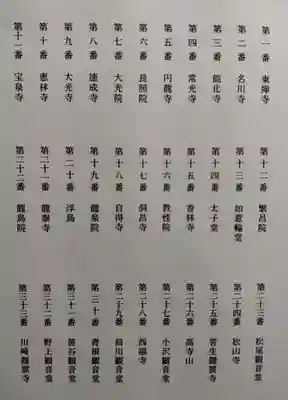 第一番 東禅寺
第二番 名川寺
第三番 能化寺
第四番 常光寺
第五番 円龍寺
第六番 長照院
第七番 大光院
第八番 徳成寺
第九番 大光寺
第十番 恵林寺
第十一番 宝泉寺
第十二番 繁昌院
第十三番 如意輪堂
第十四番 太子堂
第十五番 香林寺
第十六番 教性院
第十七番 洞昌寺
第十八番 自得寺
第十九番 龍泉院
第二十番 浮島
第二十一番 龍泰寺
第二十二番 龍島院
第二十三番 松尾観音堂
第二十四番 松山寺
第二十五番 菅生観音寺
第二十六番 高寺山
第二十七番 小沢観音堂
第二十八番 西福寺
第二十九番 前川観音堂
第三十番 青根観音堂
第三十一番 笹谷観音堂
第三十二番 野上観音堂
第三十三番 川崎観音寺